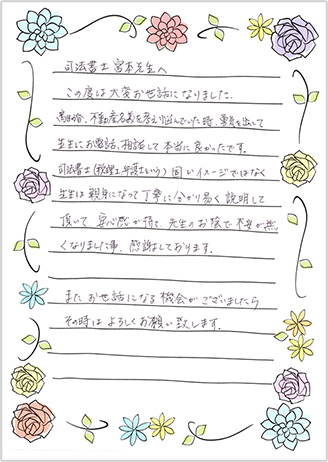 司法書士宮本先生へ
この度は大変お世話になりました。
離婚、不動産名義を考え悩んでいた時、勇気を出して
先生にお電話、相談して本当に良かったです。
司法書士(税理士,弁護士という)固いイメージではなく
先生は親身になって丁寧に分かり易く説明して
頂いて、安心感が得て、先生のお陰で不安が無
くなりました事、感謝しております。
またお世話になる機会がございましたら
その時はよろしくお願い致します。